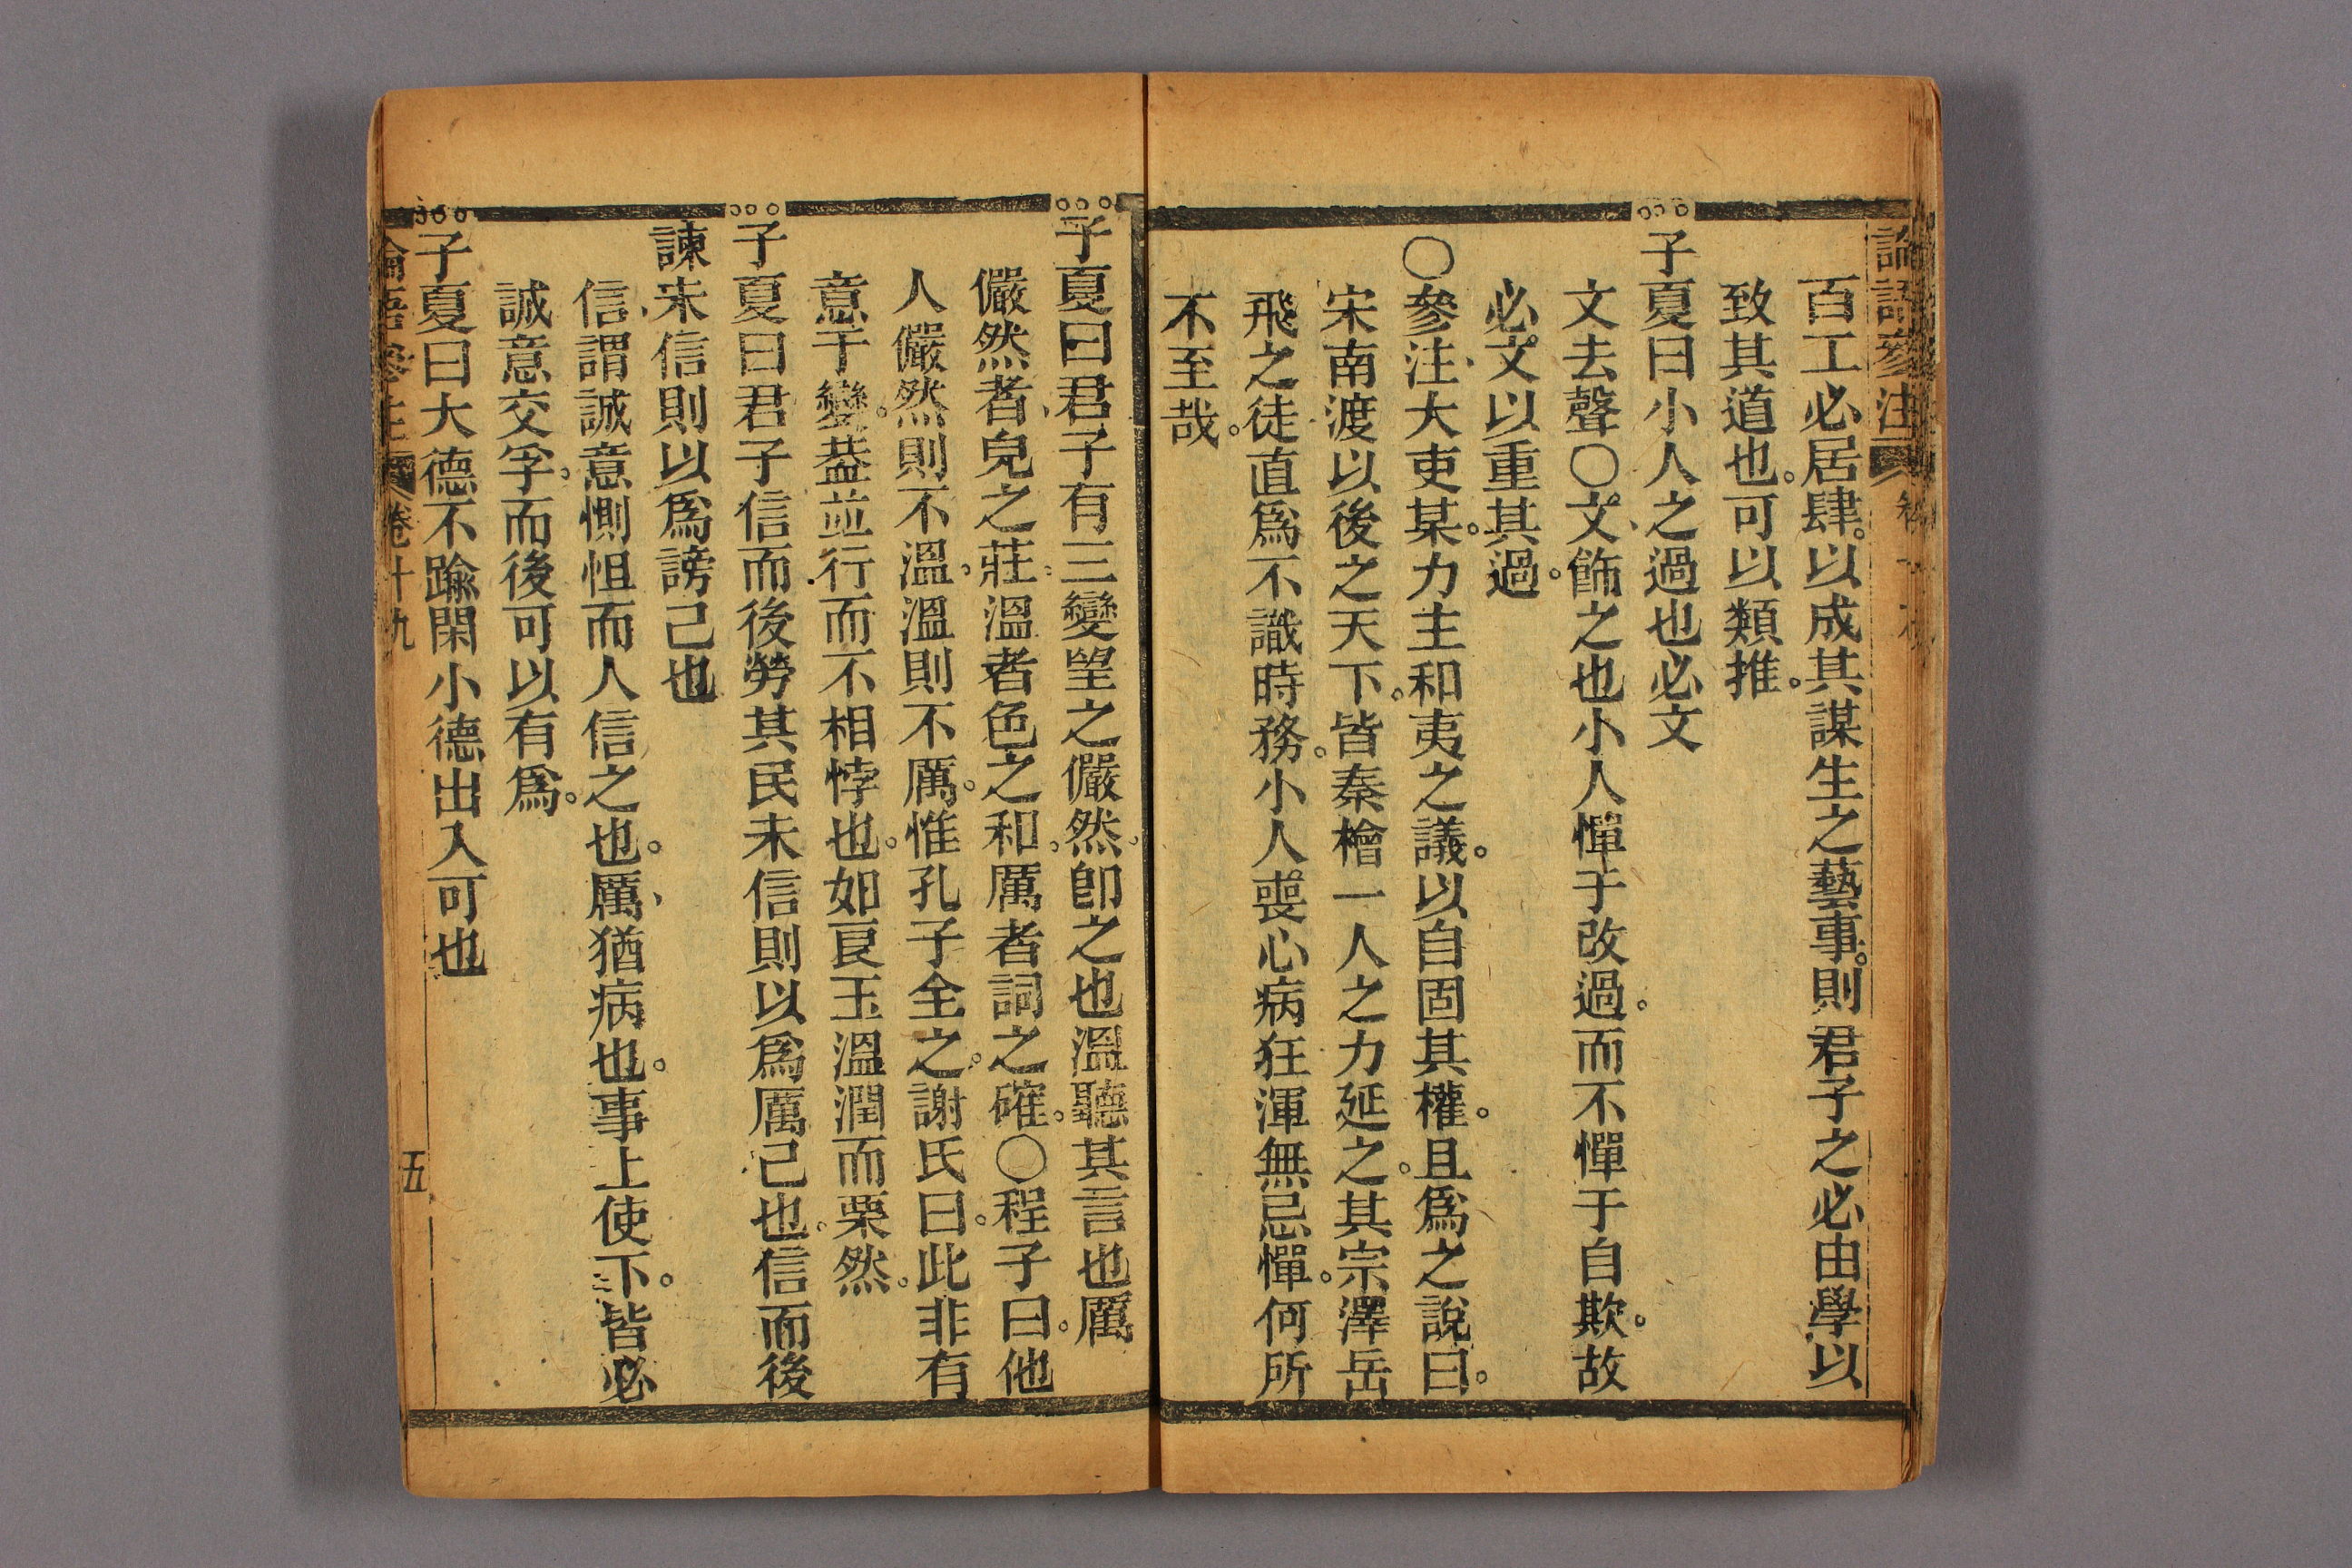 論語參注
百工必居肆。以成其謀生之藝事。則君子之必由學以
致其道也。可以類推。
子夏曰小人之過也必文
文去聲〇文、飾之也小人憚于改過。而不憚于自欺。故
必文以重其過。
〇參注、大吏某。力主和夷之議。以自固其權。且爲之說曰。
宋南渡以後之天下。皆秦檜一人之力延之。其宗澤岳
飛之徒直爲不識時務。小人喪心病狂渾無忌憚。何所
不至哉。
子夏曰君子有三變望之儼然卽之也溫聽其言也厲
儼然者、皃之莊。溫者色之和。厲者詞之確。〇程子曰。他
人儼然則不溫。溫則不厲。惟孔子全之。謝氏曰。此非有
意于變。葢並行而不相悖也。如良玉溫潤而栗然。
子夏曰君子信而後勞其民未信則以爲厲己也。信而後
諫未信則以爲謗己也
信、謂誠意惻怛而人信之也。厲、猶病也。事上使下。皆必
誠意交孚。而後可以有爲。
子夏曰大德不踰閑小德出入可也
論語參注 卷十九 五